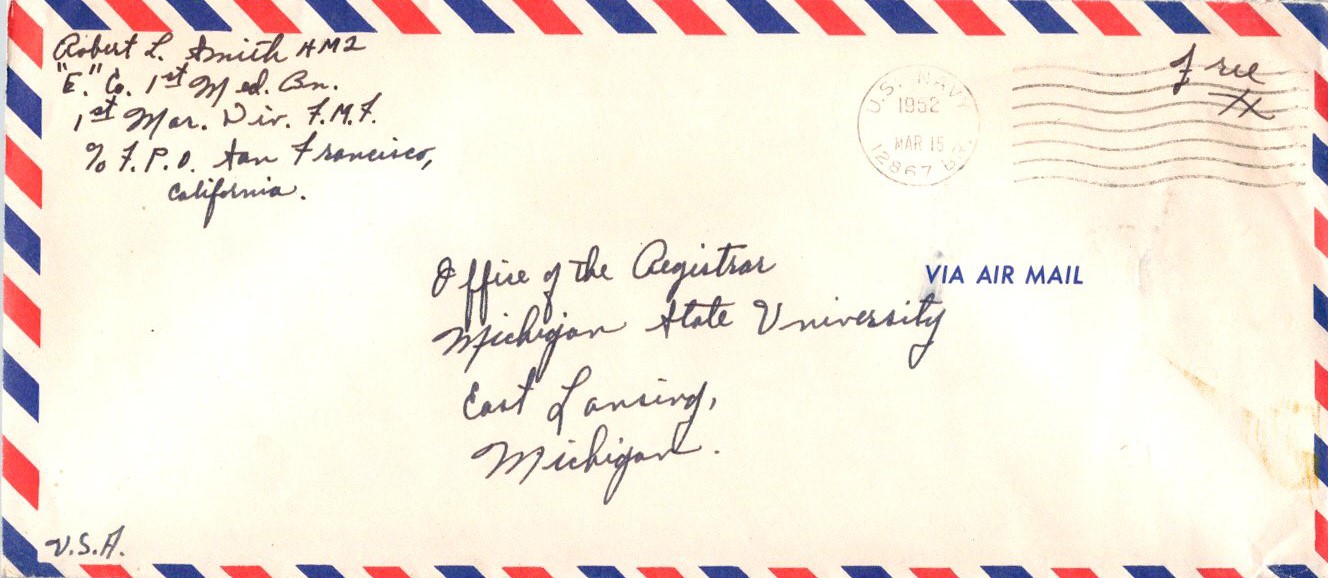 Robert L. Smith HM2
"E." Co. 1st Med. Bn.
1st Mar. Div. F.M.F.
℅ F.P.O. San Francisco,
California.
U.S. NAVY
1952
MAR 15
12867 BR.
Free
Office of the Registrar
Michigan State University
East Lansing,
Michigan.
VIA AIR MAIL
U.S.A.